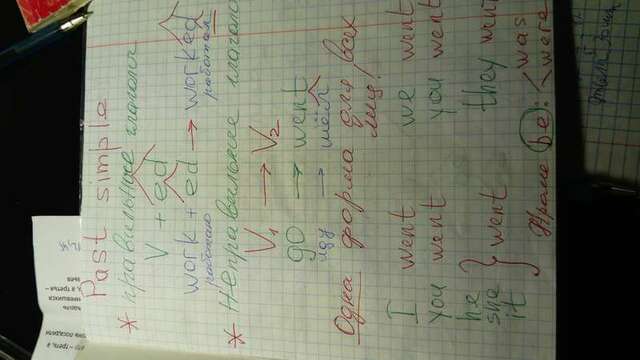 Past simple
* Правильные глаголы
V + ed
work + ed → worked
работаю работал
* Неправильные глаголы
V1 → V2
go → went
иду → шёл
Одна форма для всех
лиц!
I went we went
you went you went
he
she } went they went
it
Кроме be: < was
were